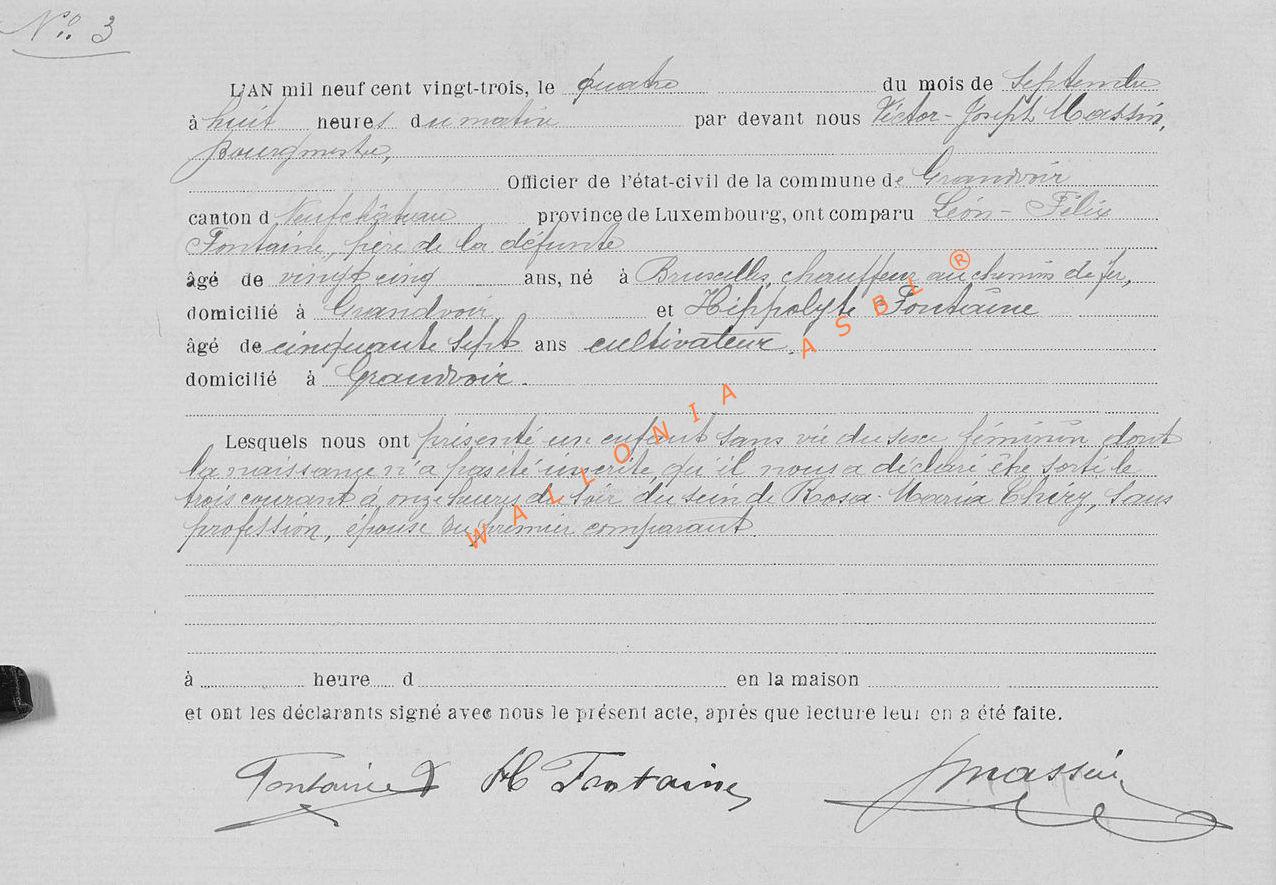 N° 3
L'AN mil neuf cent vingt-trois, le quatre du mois de Septembre
à huit heures du matin par devant nous Victor-Joseph Massin,
Bourgmestre,
Officier de l'état-civil de la commune de Grandvoir
canton d Neufchâteau province de Luxembourg, ont comparu Léon-Félix
Fontaine, père de la défunte
âgé de vingt cinq ans, né à Bruxelles, chauffeur au chemin de fer,
domicilié à Grandvoir, et Hippolyte Fontaine
âgé de cinquante sept ans cultivateur,
domicilié à Grandvoir.
Lesquels nous ont présenté un enfant sans vie du sexe féminin dont
la naissance n'a pas été inscrite, qu'il nous a déclaré être sorti le
trois courant à onze heures du soir du sein de Rosa-Maria Thiry, sans
profession, épouse du premier comparant.
à heure d en la maison
et ont les déclarants signé avec nous le présent acte, après que lecture leur en a été faite.
Fontaine H Fontaine Massin
WALLONIA ASBL ®